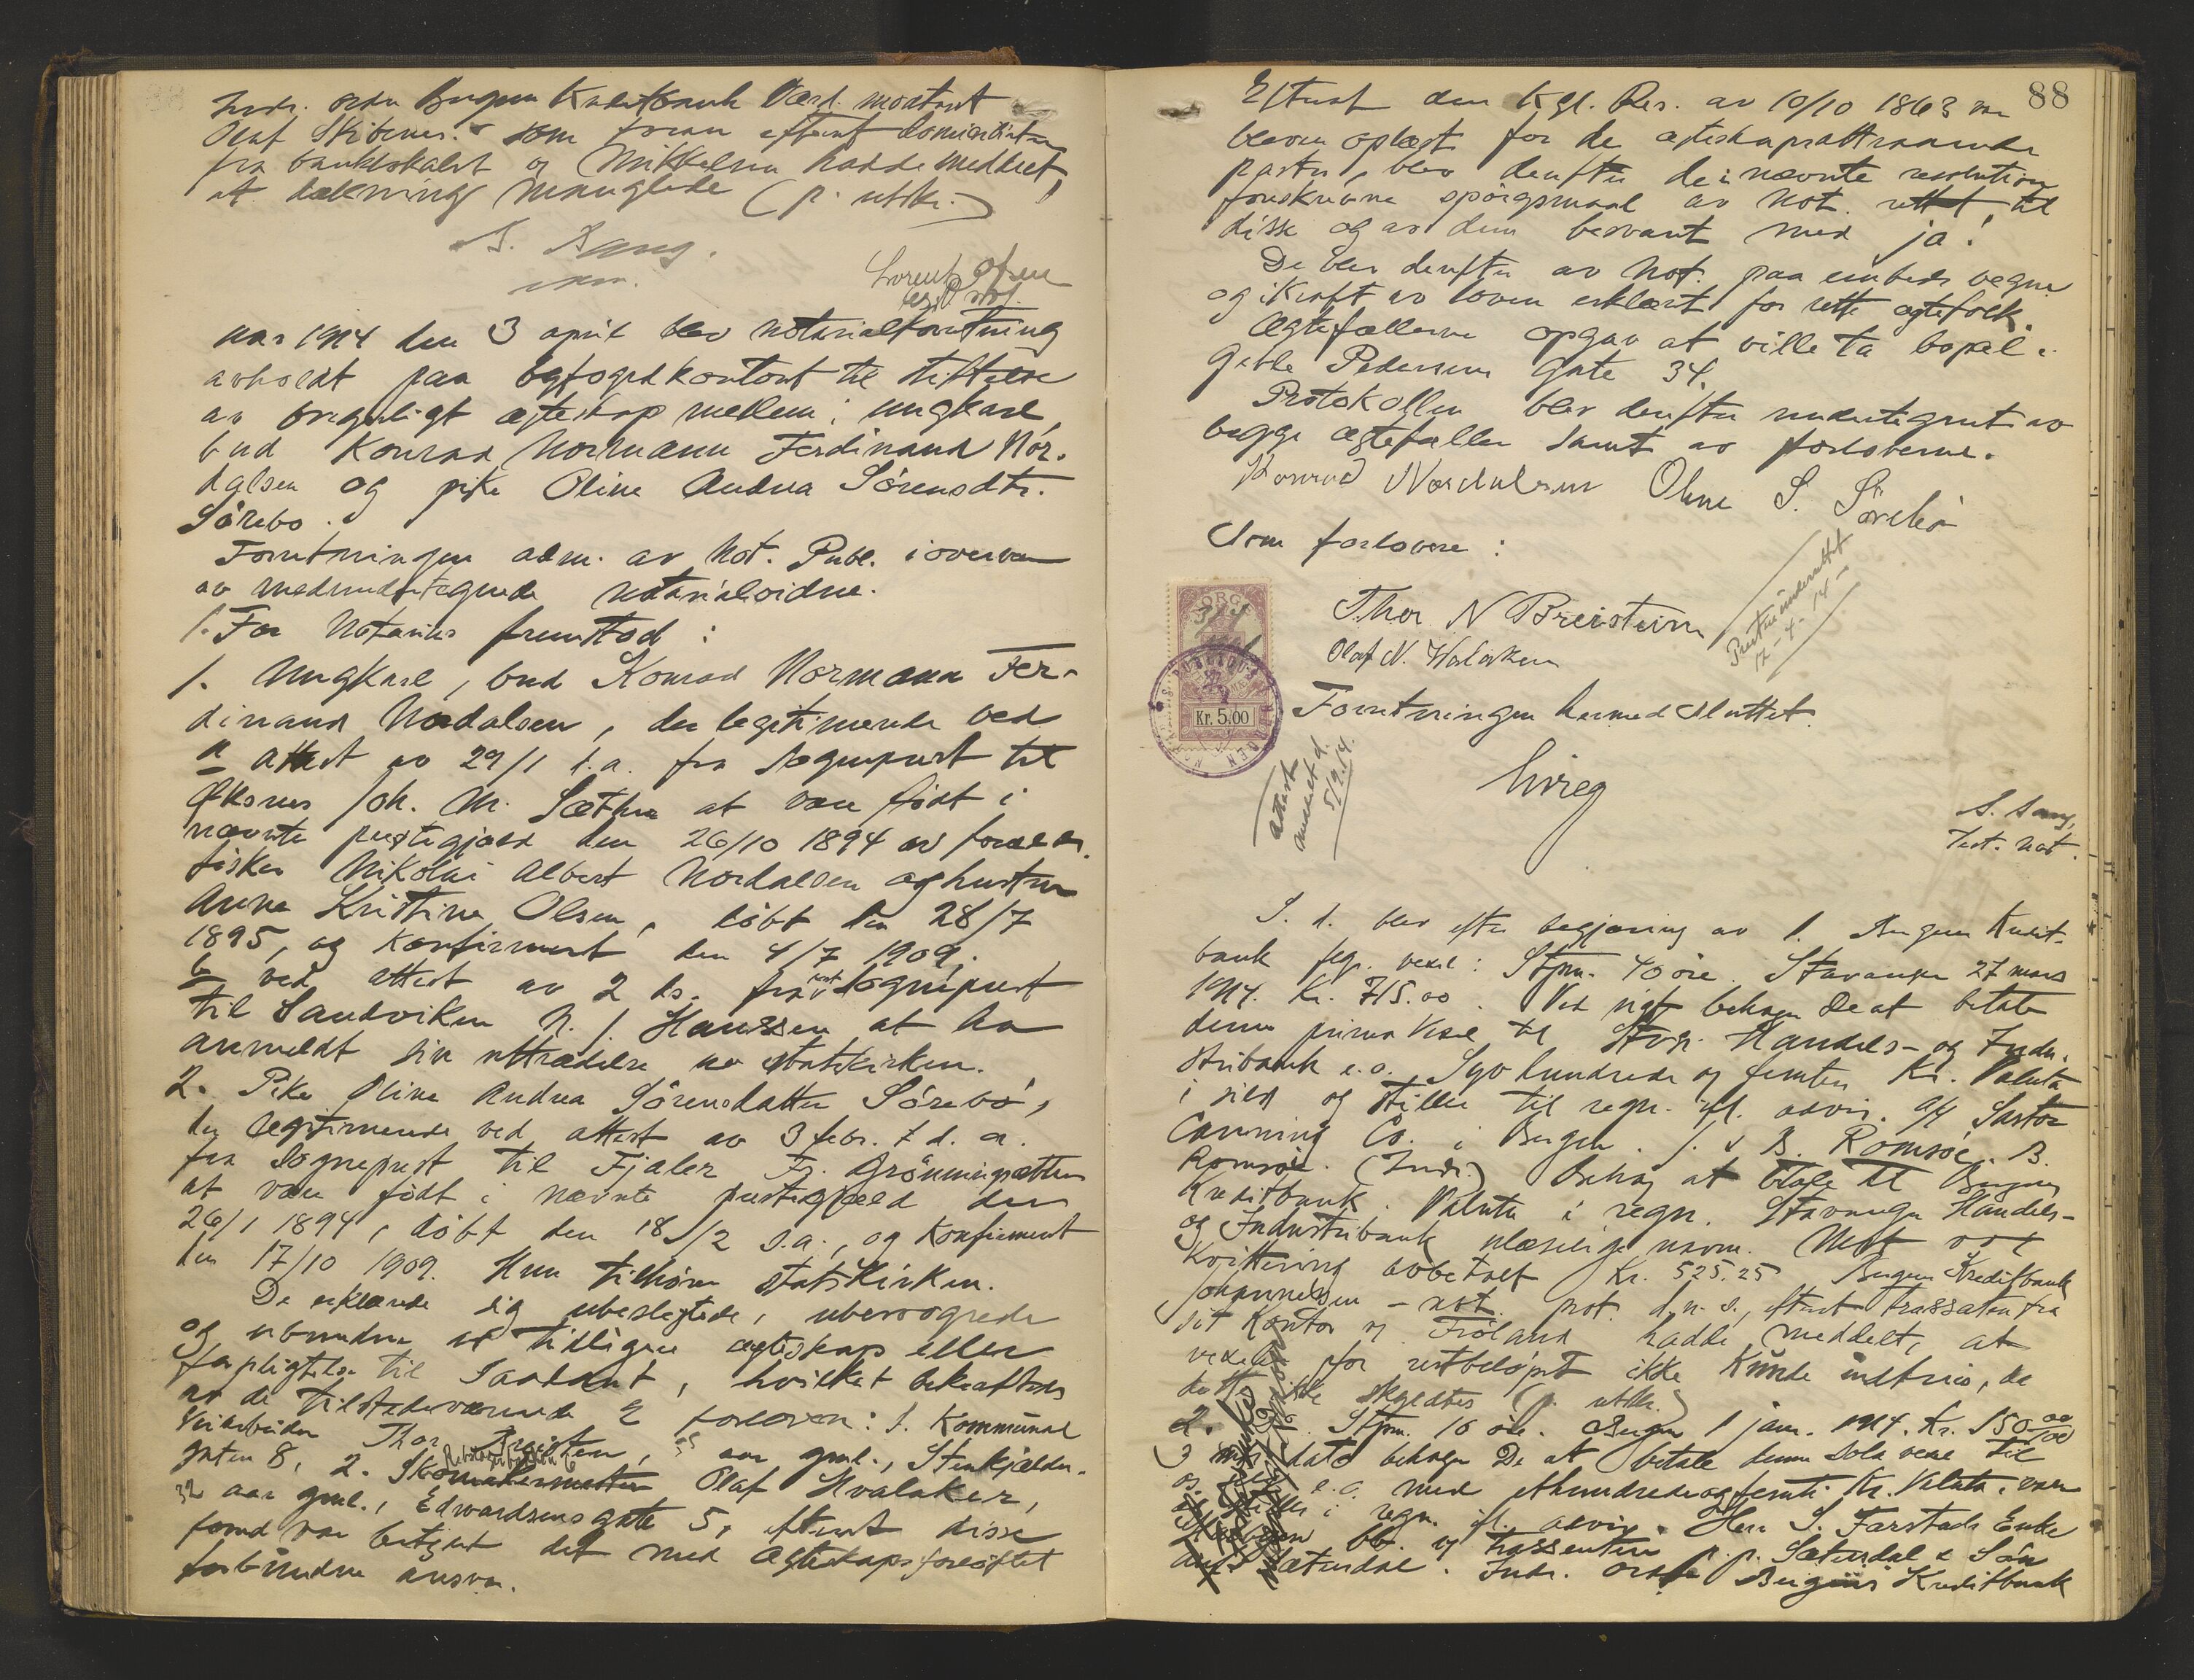 Indr. ordre Bergens Kreditbank Værd. mottat
Olaf Skibenes. som foran efterat domiciliaten
fra banklokalet og Mikkelsen hadde meddelt,
at dækning manglede (p. utstr.)
S. Bang.
Lorentz
Aar 1914 den 3 april blev notarialforretning
avholdt paa byfogedkontoret til stiftelse
av borgerligt egteskap mellem: ungkarl,
bud Konrad Normann Ferdinand Nor-
dalsen og pike Oline Andrea Sørensdtr.
Sørebø.
Forretningen adm. av Not. Publ. i overvær
av medundertegnede notarialvidne.
For Notarius fremstod:
1. Ungkarl, bud Konrad Normann Fer-
dinand Nordalsen, der legitimerede ved
a attest av 29/1 d.a. fra sogneprest til
Øksnes Joh. M. Sæther at være født i
nævnte prestegjæld den 26/10 1894 av forældre
fisker Nikolai Albert Nordalsen og hustru
Anna Kristine Olsen, døbt den 28/7
1895, og konfirmert den 4/7 1909.
b ved attest av 2 ds. fra rest. sogneprest
til Sandviken N. J. Hanssen at ha
anmeldt sin uttrædelse av statskirken.
2. Pike Oline Andrea Sørensdatter Sørebø,
der legitimerede ved attest av 3 febr. d. a.
fra Sogneprest til Fjaler Fr. Grønningsæther
at være født i nævnte prestegjæld den
26/1 1894, døbt den 18/2 s.a., og konfirmert
den 17/10 1909. Hun tilhører statskirken.
De erklærede sig ubeslegtede, ubesvogrede
og ubundne av tidligere egteskap eller
forpligtelse til saadant, hvilket bekræftedes
av de tilstedeværende 2 forlovere: 1. Kommunal
Veiarbeider Thor Breistein, 55 aar gml., Steinkjælder-
gaten 8, 2. Skomakermester Olaf Hvalaker,
32 aar gml., Edwardsens gate 5, efterat disse
først var betydet det med Egteskapsforløftet
forbundne ansvar.
88
Efterat den Kgl. Res. av 10/10 1863 var
bleven oplæst for de egteskapsattraaende
parter, blev derefter de i nævnte resolution
foreskrevne spørgsmaal av Not. rettet til
disse og av dem besvart med ja.
De blev derefter av Not. paa embeds vegne
og i kraft av loven erklært for rette egtefolk.
Egtefællerne opgav at ville ta bopæl i
Geble Pedersens Gate 34.
Protokollen blev derefter undertegnet av
begge egtefæller samt av forloverne.
Konrad Nordalsen Oline S. Sørebø
Som forlovere:
Thor N Breistein
Presten underrettet
12-4-14-
Olaf N. Hvalaker
NORGE
3/4
Kr. 5.00
Forretningen hermed sluttet.
attest
meddelt d.
5/9.14.
S. Bang,
Test. not.
S. d. blev efter begjæring av 1. Bergens Kredit-
bank flgr. vexel: Stpm. 40 øre. Stavanger 27 mars
1914. Kr. 715.00. Ved sigt behager De at betale
denne prima vexel til Stvgr. Handels- og Indu-
stribank e.o. Syv hundrede og femten Kr. Valuta
i sild og stilles til regn. ifl. advis. A/S Sartor
Canning Co. i Bergen. J. & B. Romsøe. B.
Romsøe. (Indr.) Behag at betale til Bergens
Kreditbank. Valuta i regn. Stavanger Handels-
og Industribank ulæselige navn. Mot
Kvittering avbetalt Kr. 525.25 Bergens Kreditbank
Johannessen - not. prot. d.n.s., efterat trassaten fra
sit kontor v Frøland hadde meddelt, at
vexelen for restbeløpet ikke kunde indfries, da
dette ikke skyldtes (p. utstr.)
2. Stpm. 10 øre. Bergen 1 jan. 1914. Kr. 150 00/00
3 mdr. dato behager De at betale denne Sola vexel til
os e.o. med ethundredeogfemti Kr. Valuta i varer
stilles i regn. ifl. advis. Herr S. Farstads Enke
trassenten p.p. Sæterdal & Søn
Sæterdal. Indr. ordre Bergens Kreditbank